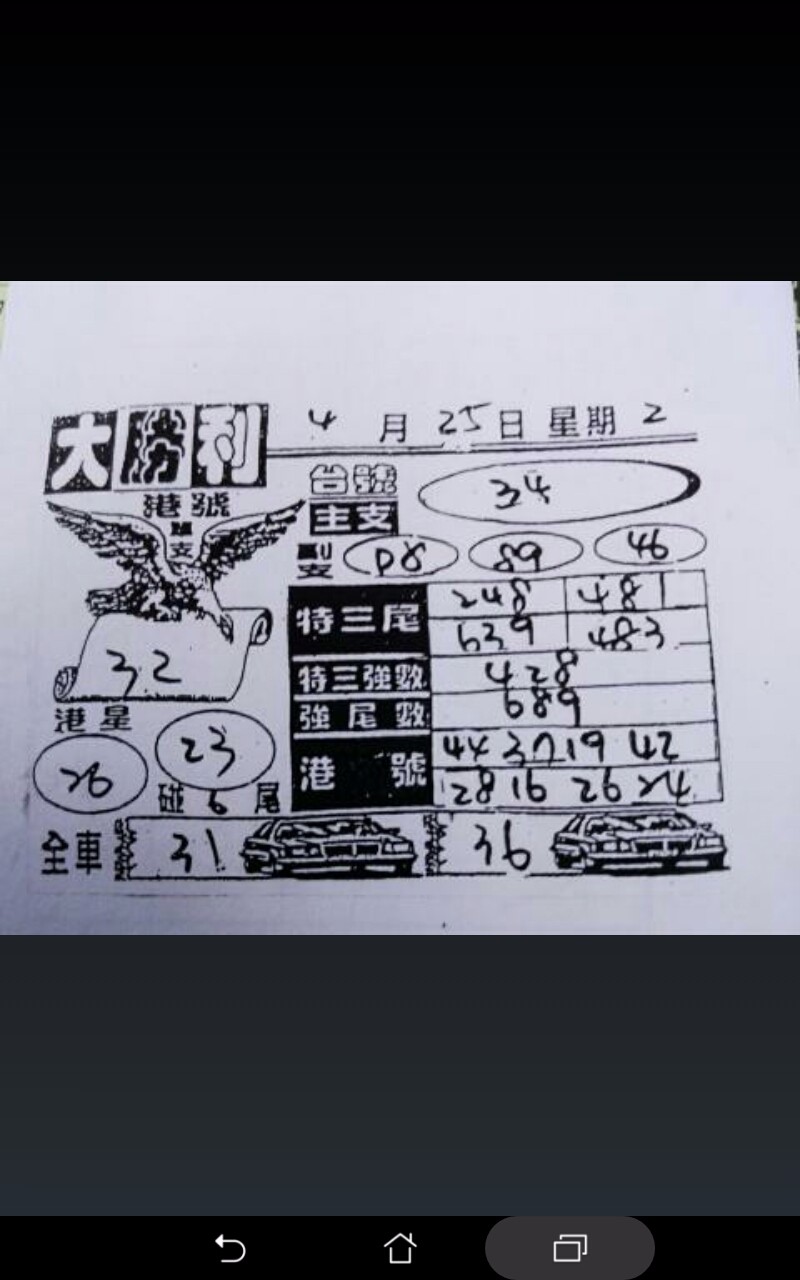 大勝利 4月25日 星期2
港號
台號 34
主支
副支 08 89 46
32
特三尾 248 481
639 483
特三強數 428
強尾數 689
港星
26 23
碰6尾
港號 44 37 19 42
28 16 26 24
全車 31 36